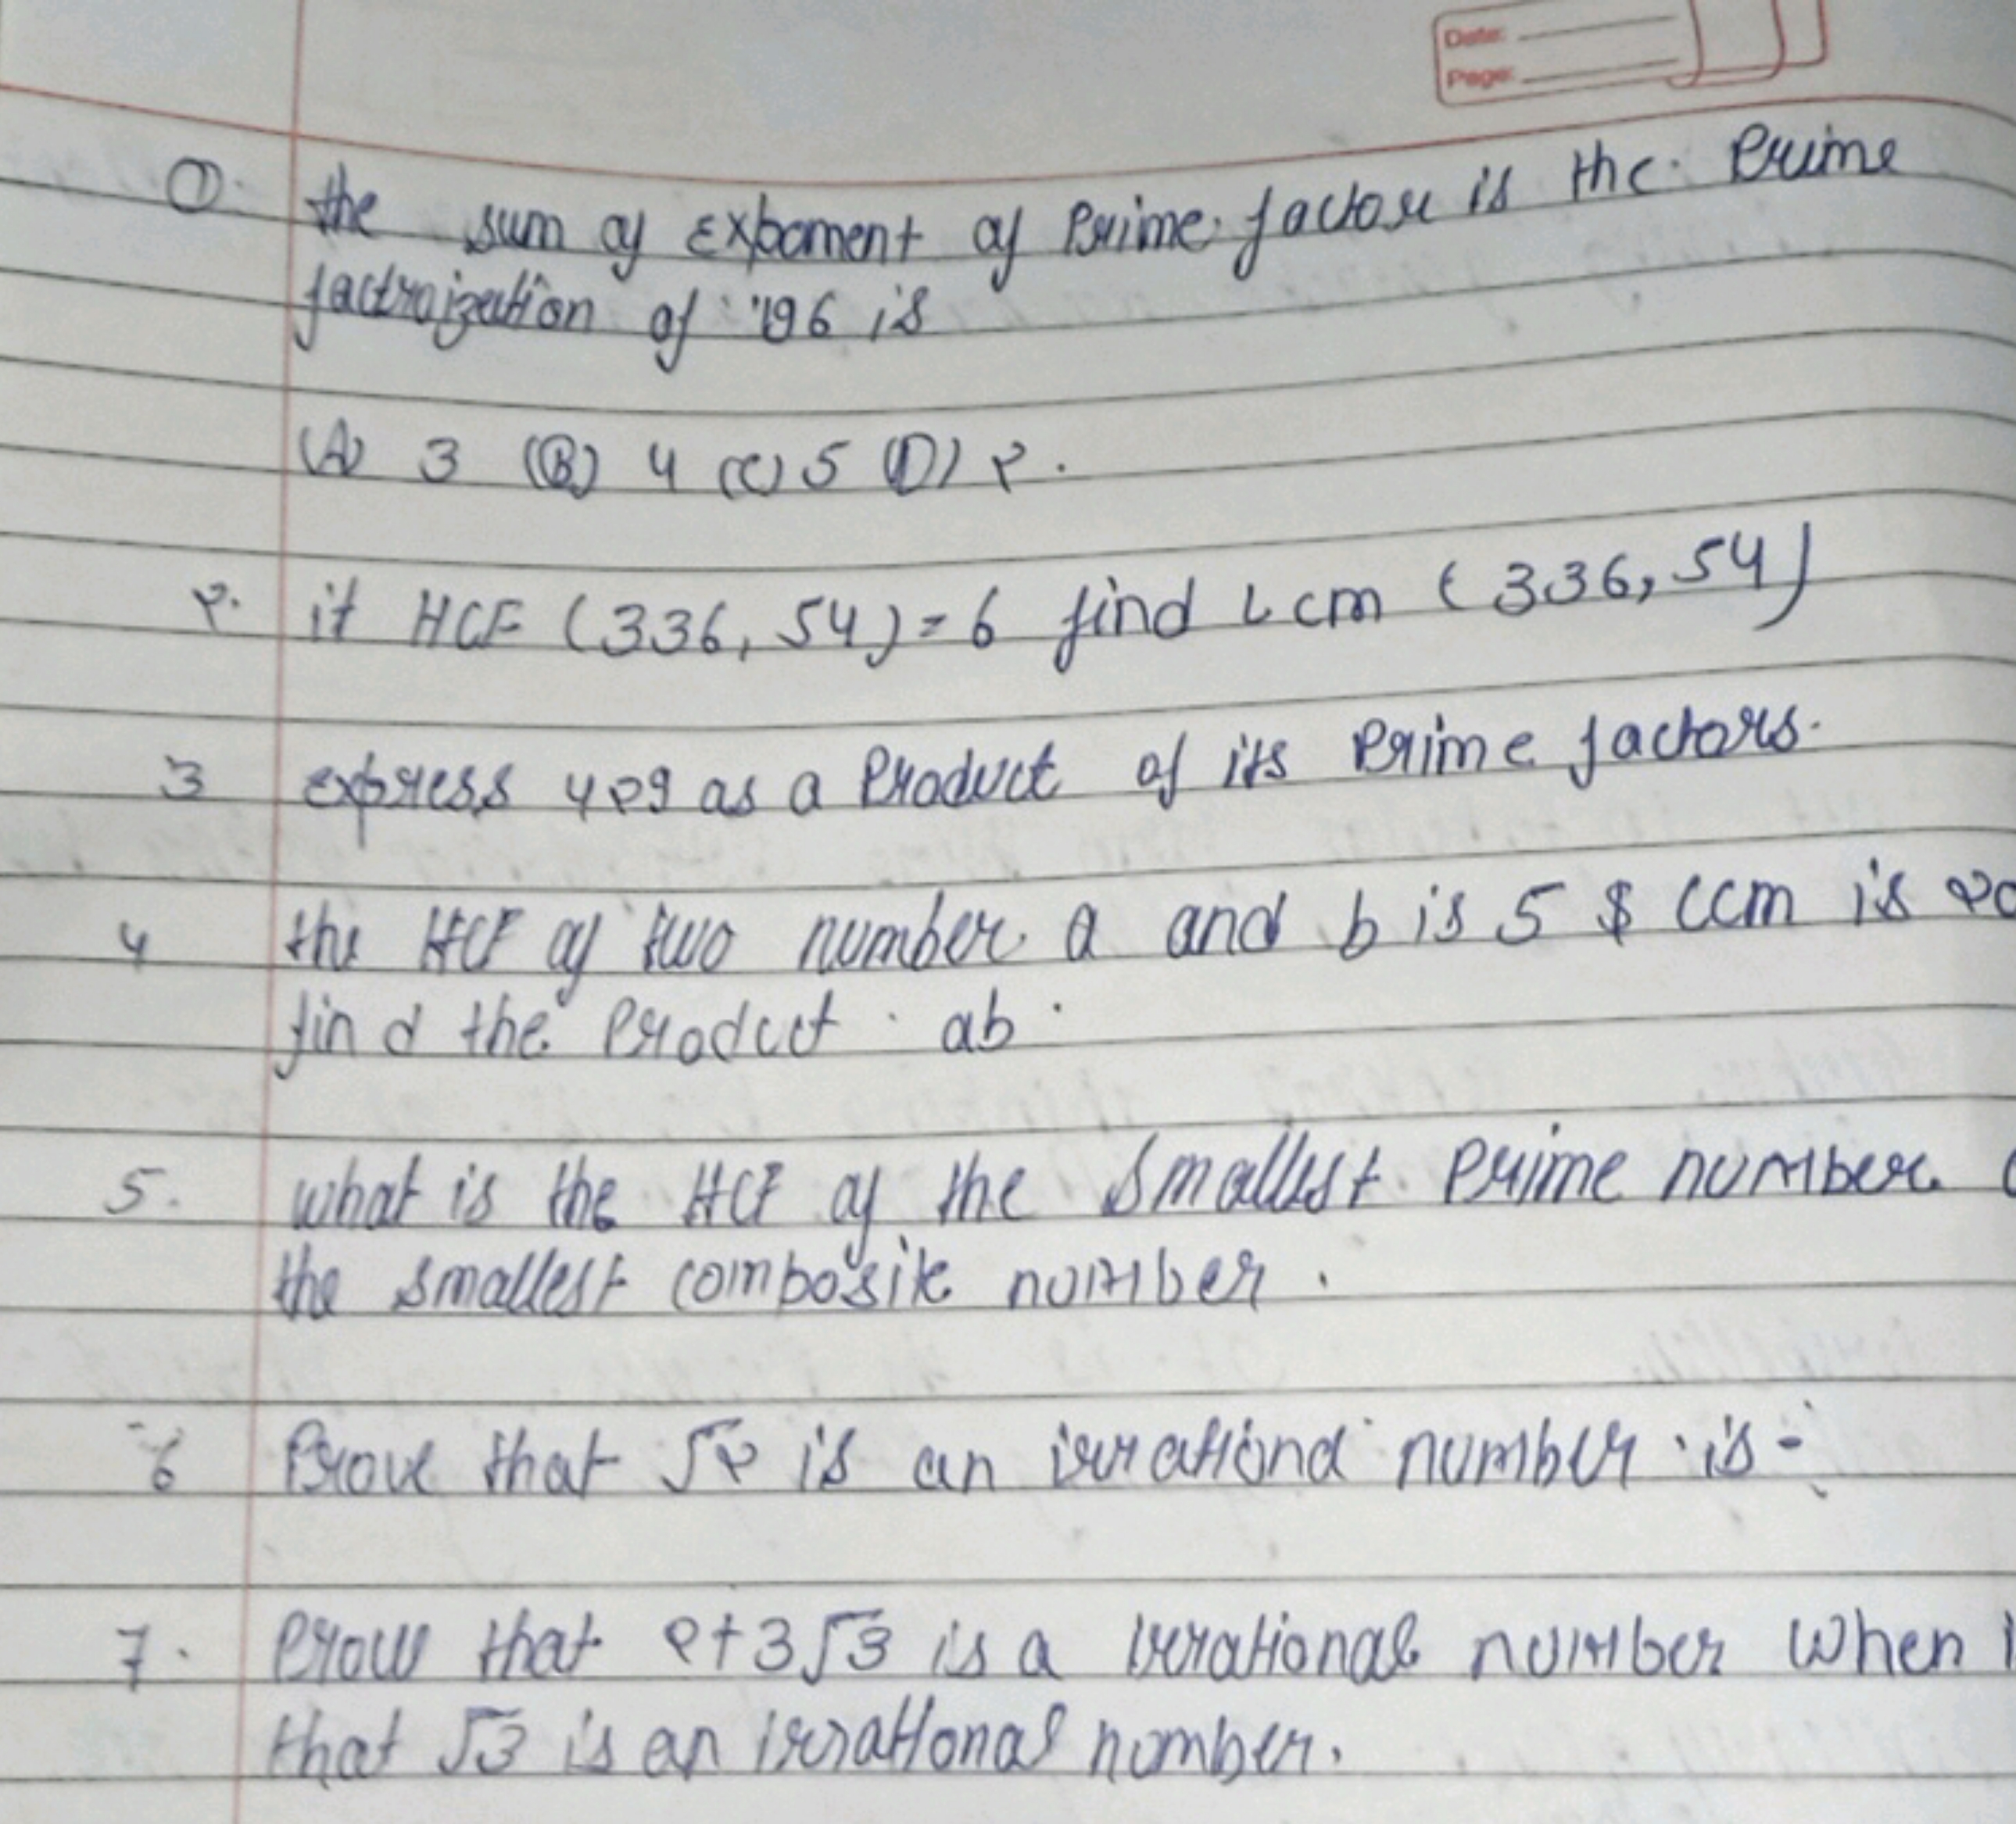 Date:
Page:
① the sum of Exboment of Prime factor is the Prime
factroization of 196 is
(A) 3 (B) 4 (C) 5 (D) 2.
2. if HCF (336, 54) = 6 find Lcm (336, 54)
3 exbress 429 as a Product of its Prime factors.
4 the HCF of two number a and b is 5 $ LCm is
find the Product ab.
5. what is the HCF of the smallest Prime number
the smallest combosite number.
6 Prove that √2 is an irrational number is -
7. Prove that 2+3√3 is a irrational number when
that √3 is an irrational number.